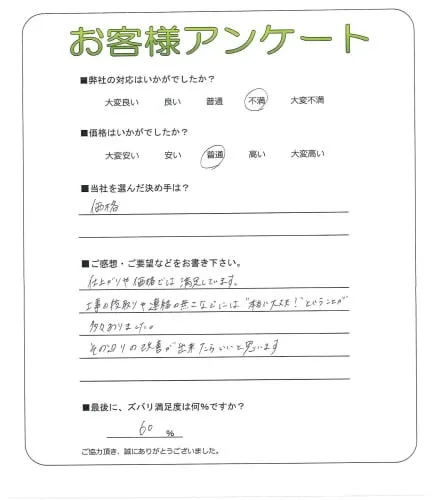 お客様アンケート
■弊社の対応はいかがでしたか?
大変良い 良い 普通 不満 大変不満
■価格はいかがでしたか?
大変安い 安い 普通 高い 大変高い
■当社を選んだ決め手は?
価格
■ご感想・ご要望などをお書き下さい。
仕上がりや価格では満足しています。
工事の段取りや連絡の無さなどには"本当に大丈夫!"ということが
多々ありました。
その辺りの改善が出来たらいいと思います
■最後に、ズバリ満足度は何%ですか?
60 %
ご協力頂き、誠にありがとうございました。